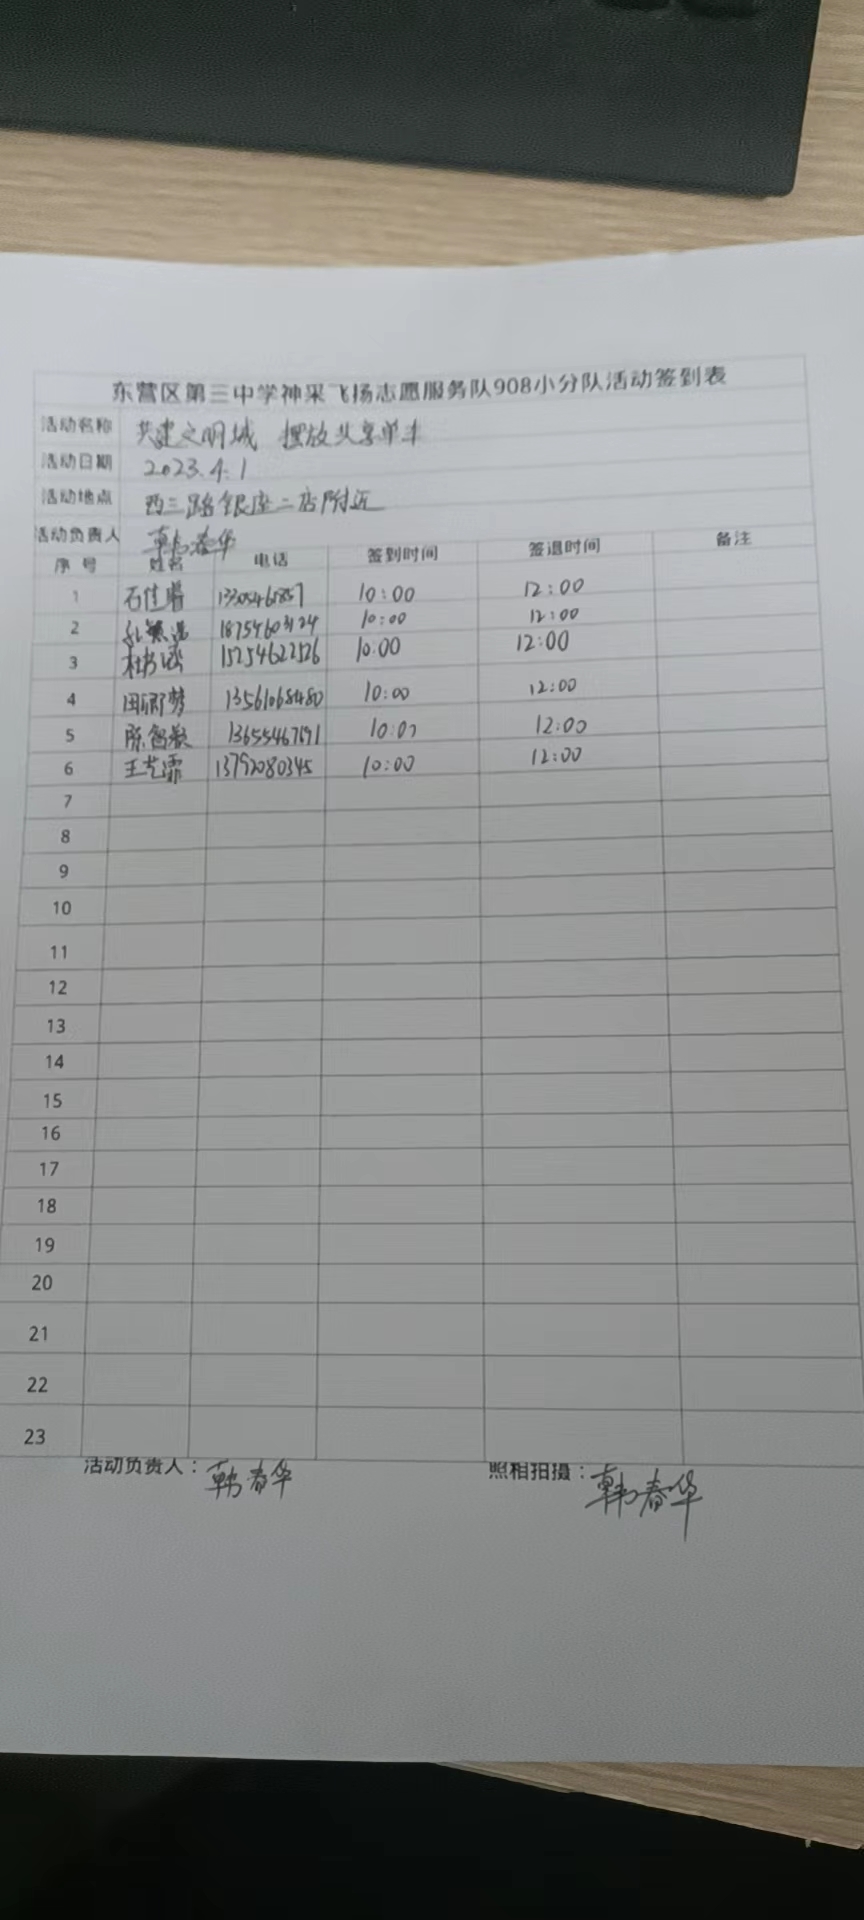 东营区第三中学神采飞扬志愿服务队908小分队活动签到表
活动名称 共建文明城 摆放共享单车
活动日期 2023.4.1
活动地点 西三路银座二店附近
活动负责人 韩春华
序号 姓名 电话 签到时间 签退时间 备注
1 石佳睿 10:00 12:00
2 18754603124 10:00 12:00
3 15254622526 10:00 12:00
4 13561068480 10:00 12:00
5 10:00 12:00
6 王艺霏 13792080345 10:00 12:00
7
8
9
10
11
12
13
14
15
16
17
18
19
20
21
22
23
活动负责人：韩春华 照相拍摄：韩春华